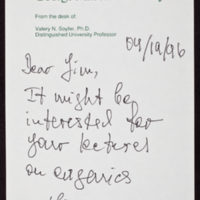 From the desk of:
Valery N. Soyfer, Ph.D.
Distinguished University Professor
04/19/96
Dear Jim,
It might be
interested for
your lectures
on eugenics